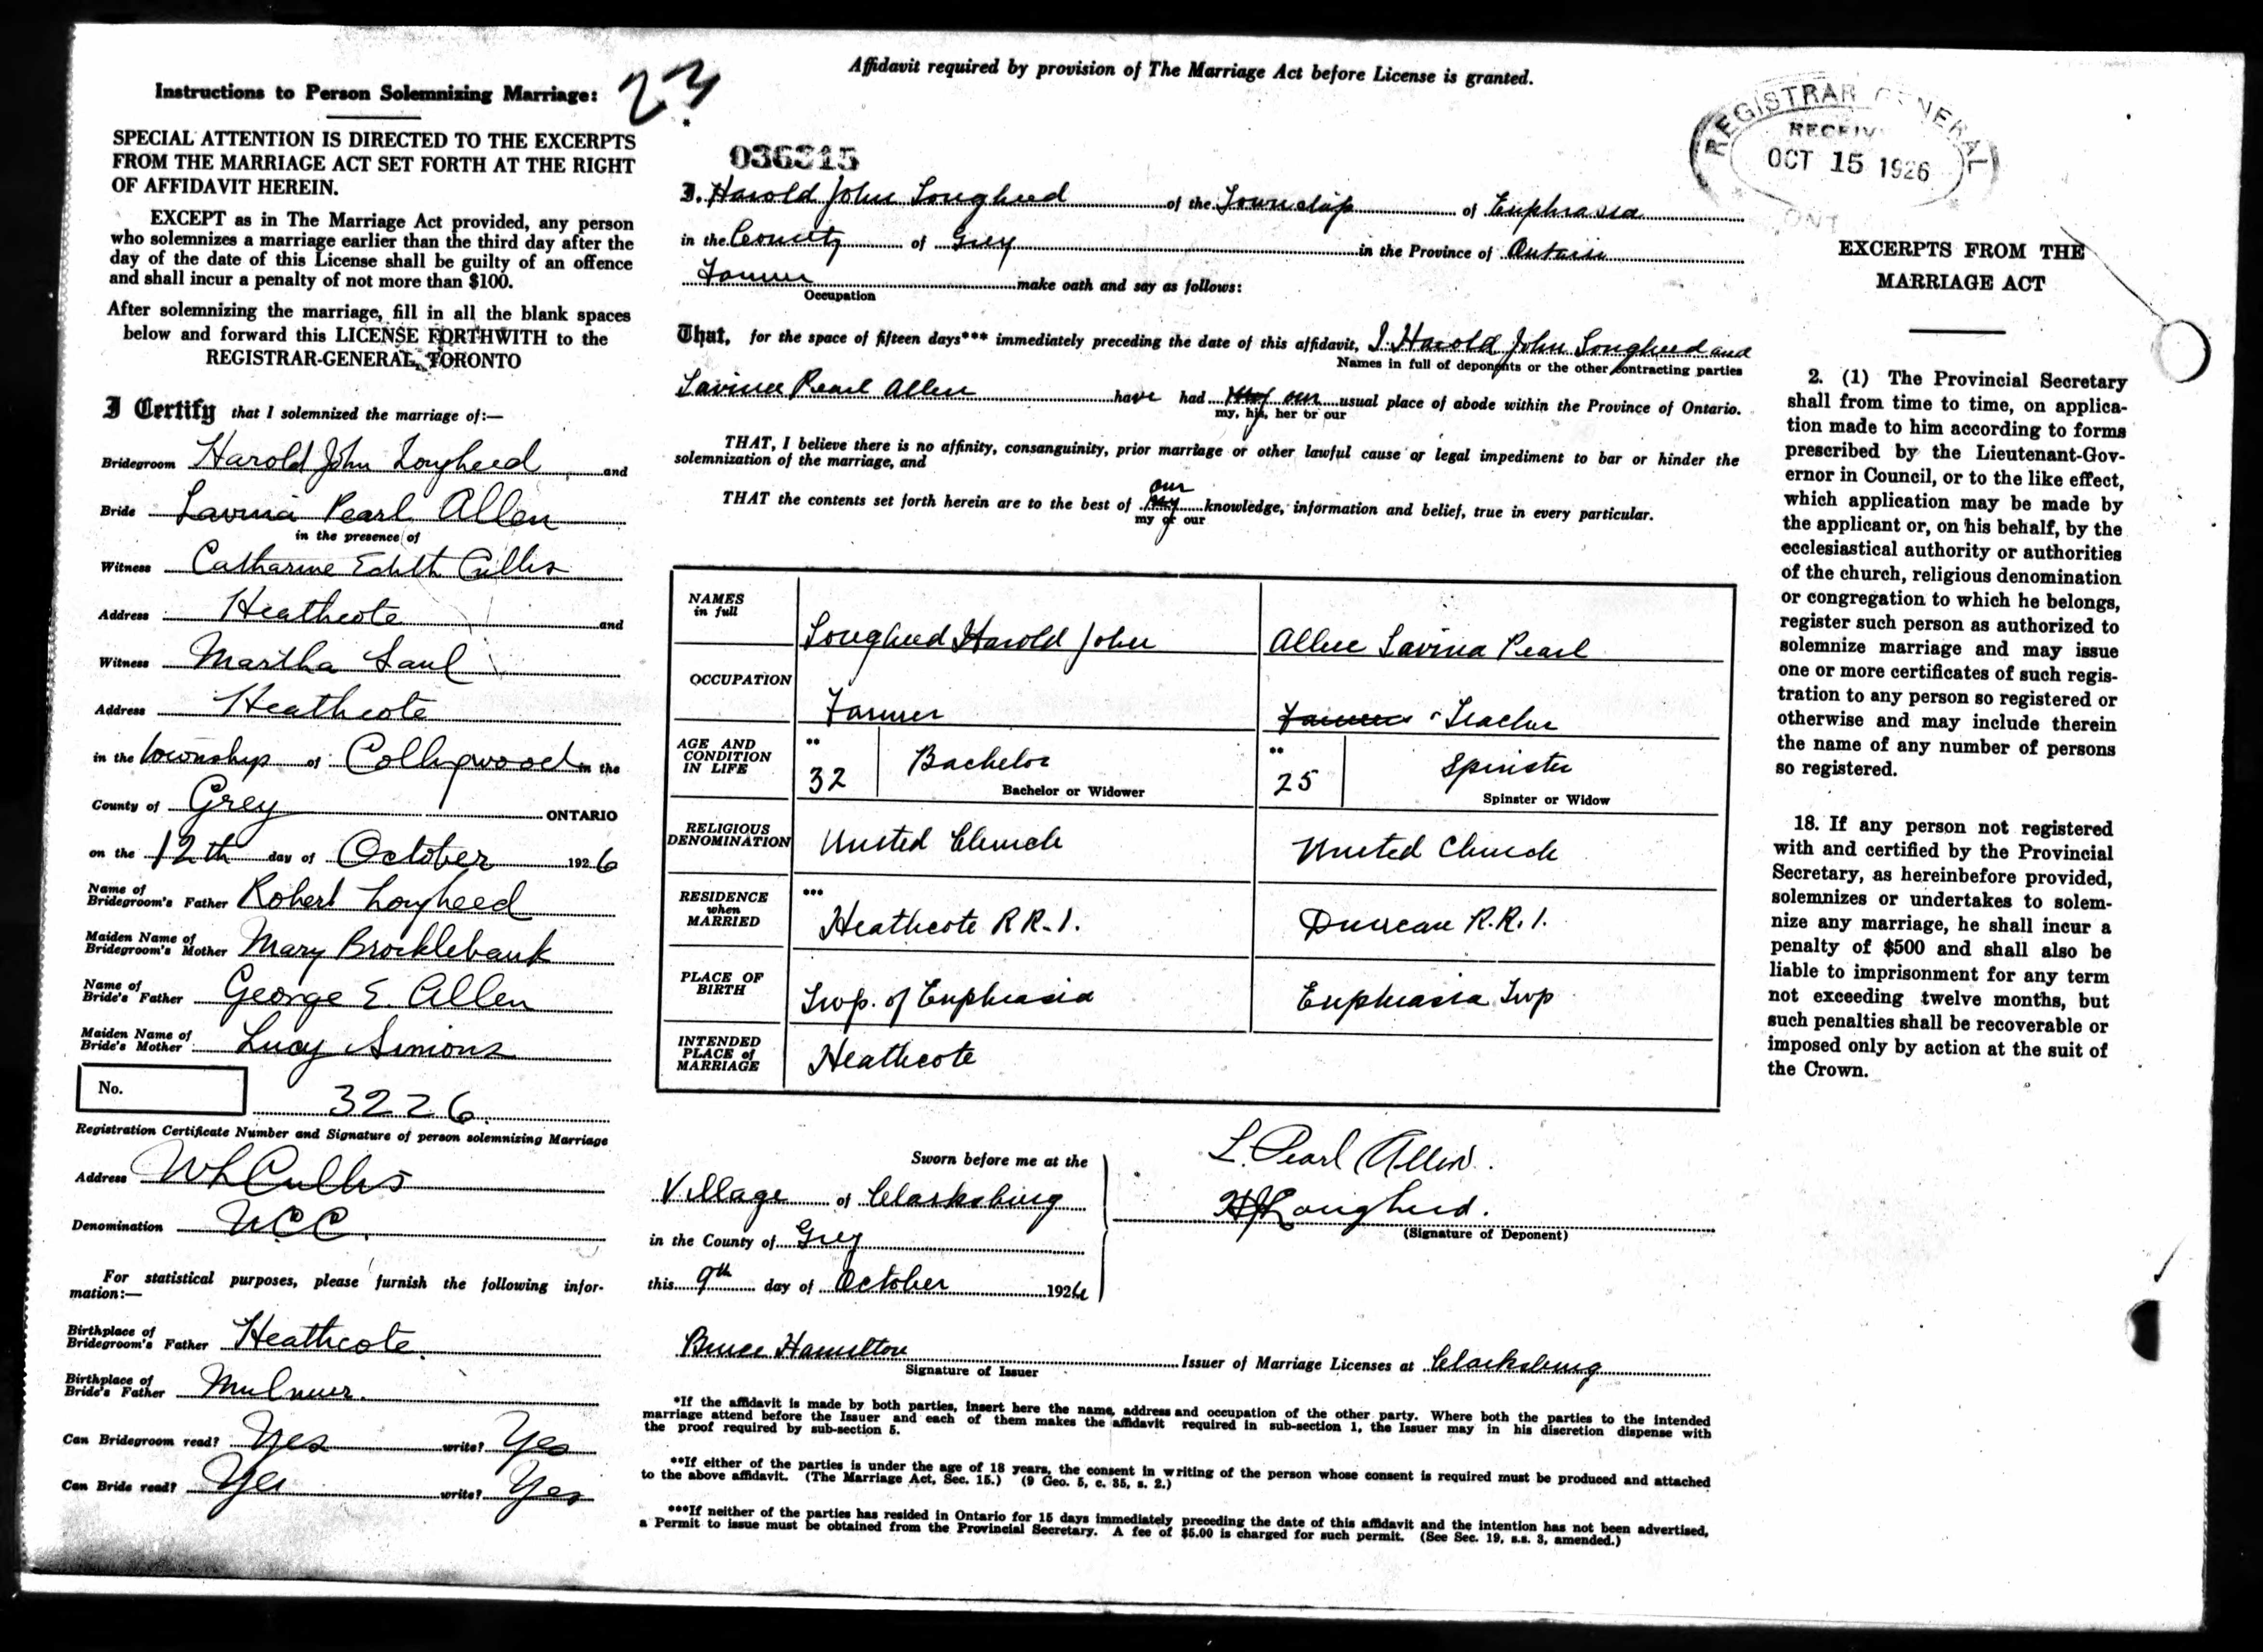 Affidavit required by provision of The Marriage Act before License is granted.
Instructions to Person Solemnizing Marriage:
23
SPECIAL ATTENTION IS DIRECTED TO THE EXCERPTS
FROM THE MARRIAGE ACT SET FORTH AT THE RIGHT
OF AFFIDAVIT HEREIN.
EXCEPT as in The Marriage Act provided, any person
who solemnizes a marriage earlier than the third day after the
day of the date of this License shall be guilty of an offence
and shall incur a penalty of not more than $100.
After solemnizing the marriage, fill in all the blank spaces
below and forward this LICENSE FORTHWITH to the
REGISTRAR-GENERAL, TORONTO
I Certify that I solemnized the marriage of:—
Bridegroom Harold John Lougheed, and
Bride Lavina Pearl Allen
in the presence of
Witness Catharine Edith Cullis
Address Heathcote and
Witness Martha Saul
Address Heathcote
in the township of Collingwood in the
County of Grey ONTARIO
on the 12th day of October 1926
Name of
Bridegroom's Father Robert Lougheed
Maiden Name of
Bridegroom's Mother Mary Brocklebank
Name of
Bride's Father George E. Allen
Maiden Name of
Bride's Mother Lucy Simons
No. 3226.
Registration Certificate Number and Signature of person solemnizing Marriage
Address W L Cullis
Denomination U.C.C.
For statistical purposes, please furnish the following infor-
mation:—
Birthplace of
Bridegroom's Father Heathcote.
Birthplace of
Bride's Father Mulmur.
Can Bridegroom read? Yes write? Yes
Can Bride read? Yes write? Yes
036315
I, Harold John Lougheed of the Township of Euphrasia
in the County of Grey in the Province of Ontario
Farmer make oath and say as follows:
Occupation
That, for the space of fifteen days*** immediately preceding the date of this affidavit, I, Harold John Lougheed and
Names in full of deponents or the other contracting parties
Lavina Pearl Allen have had our usual place of abode within the Province of Ontario.
my, his, her or our
THAT, I believe there is no affinity, consanguinity, prior marriage or other lawful cause or legal impediment to bar or hinder the
solemnization of the marriage, and
our
THAT the contents set forth herein are to the best of my knowledge, information and belief, true in every particular.
my or our
NAMES
in full
Lougheed Harold John
Allen Lavina Pearl
OCCUPATION
Farmer
Farmer Teacher
AGE AND
CONDITION
IN LIFE
** 32 Bachelor
Bachelor or Widower
** 25 Spinster
Spinster or Widow
RELIGIOUS
DENOMINATION
United Church
United Church
RESIDENCE
when
MARRIED
***
Heathcote R R. 1.
Duncan R.R. 1.
PLACE OF
BIRTH
Twp. of Euphrasia
Euphrasia Twp
INTENDED
PLACE of
MARRIAGE
Heathcote
Sworn before me at the
Village of Clarksburg
in the County of Grey
this 9th day of October 1926
L. Pearl Allen.
H J Lougheed.
(Signature of Deponent)
Bruce Hamilton Issuer of Marriage Licenses at Clarksburg
Signature of Issuer
*If the affidavit is made by both parties, insert here the name, address and occupation of the other party. Where both the parties to the intended
marriage attend before the Issuer and each of them makes the affidavit required in sub-section 1, the Issuer may in his discretion dispense with
the proof required by sub-section 5.
**If either of the parties is under the age of 18 years, the consent in writing of the person whose consent is required must be produced and attached
to the above affidavit. (The Marriage Act, Sec. 15.) (9 Geo. 5, c. 35, s. 2.)
***If neither of the parties has resided in Ontario for 15 days immediately preceding the date of this affidavit and the intention has not been advertised,
a Permit to issue must be obtained from the Provincial Secretary. A fee of $5.00 is charged for such permit. (See Sec. 19, s.s. 3, amended.)
REGISTRAR GENERAL
RECEIV
OCT 15 1926
ONT
EXCERPTS FROM THE
MARRIAGE ACT
2. (1) The Provincial Secretary
shall from time to time, on applica-
tion made to him according to forms
prescribed by the Lieutenant-Gov-
ernor in Council, or to the like effect,
which application may be made by
the applicant or, on his behalf, by the
ecclesiastical authority or authorities
of the church, religious denomination
or congregation to which he belongs,
register such person as authorized to
solemnize marriage and may issue
one or more certificates of such regis-
tration to any person so registered or
otherwise and may include therein
the name of any number of persons
so registered.
18. If any person not registered
with and certified by the Provincial
Secretary, as hereinbefore provided,
solemnizes or undertakes to solem-
nize any marriage, he shall incur a
penalty of $500 and shall also be
liable to imprisonment for any term
not exceeding twelve months, but
such penalties shall be recoverable or
imposed only by action at the suit of
the Crown.